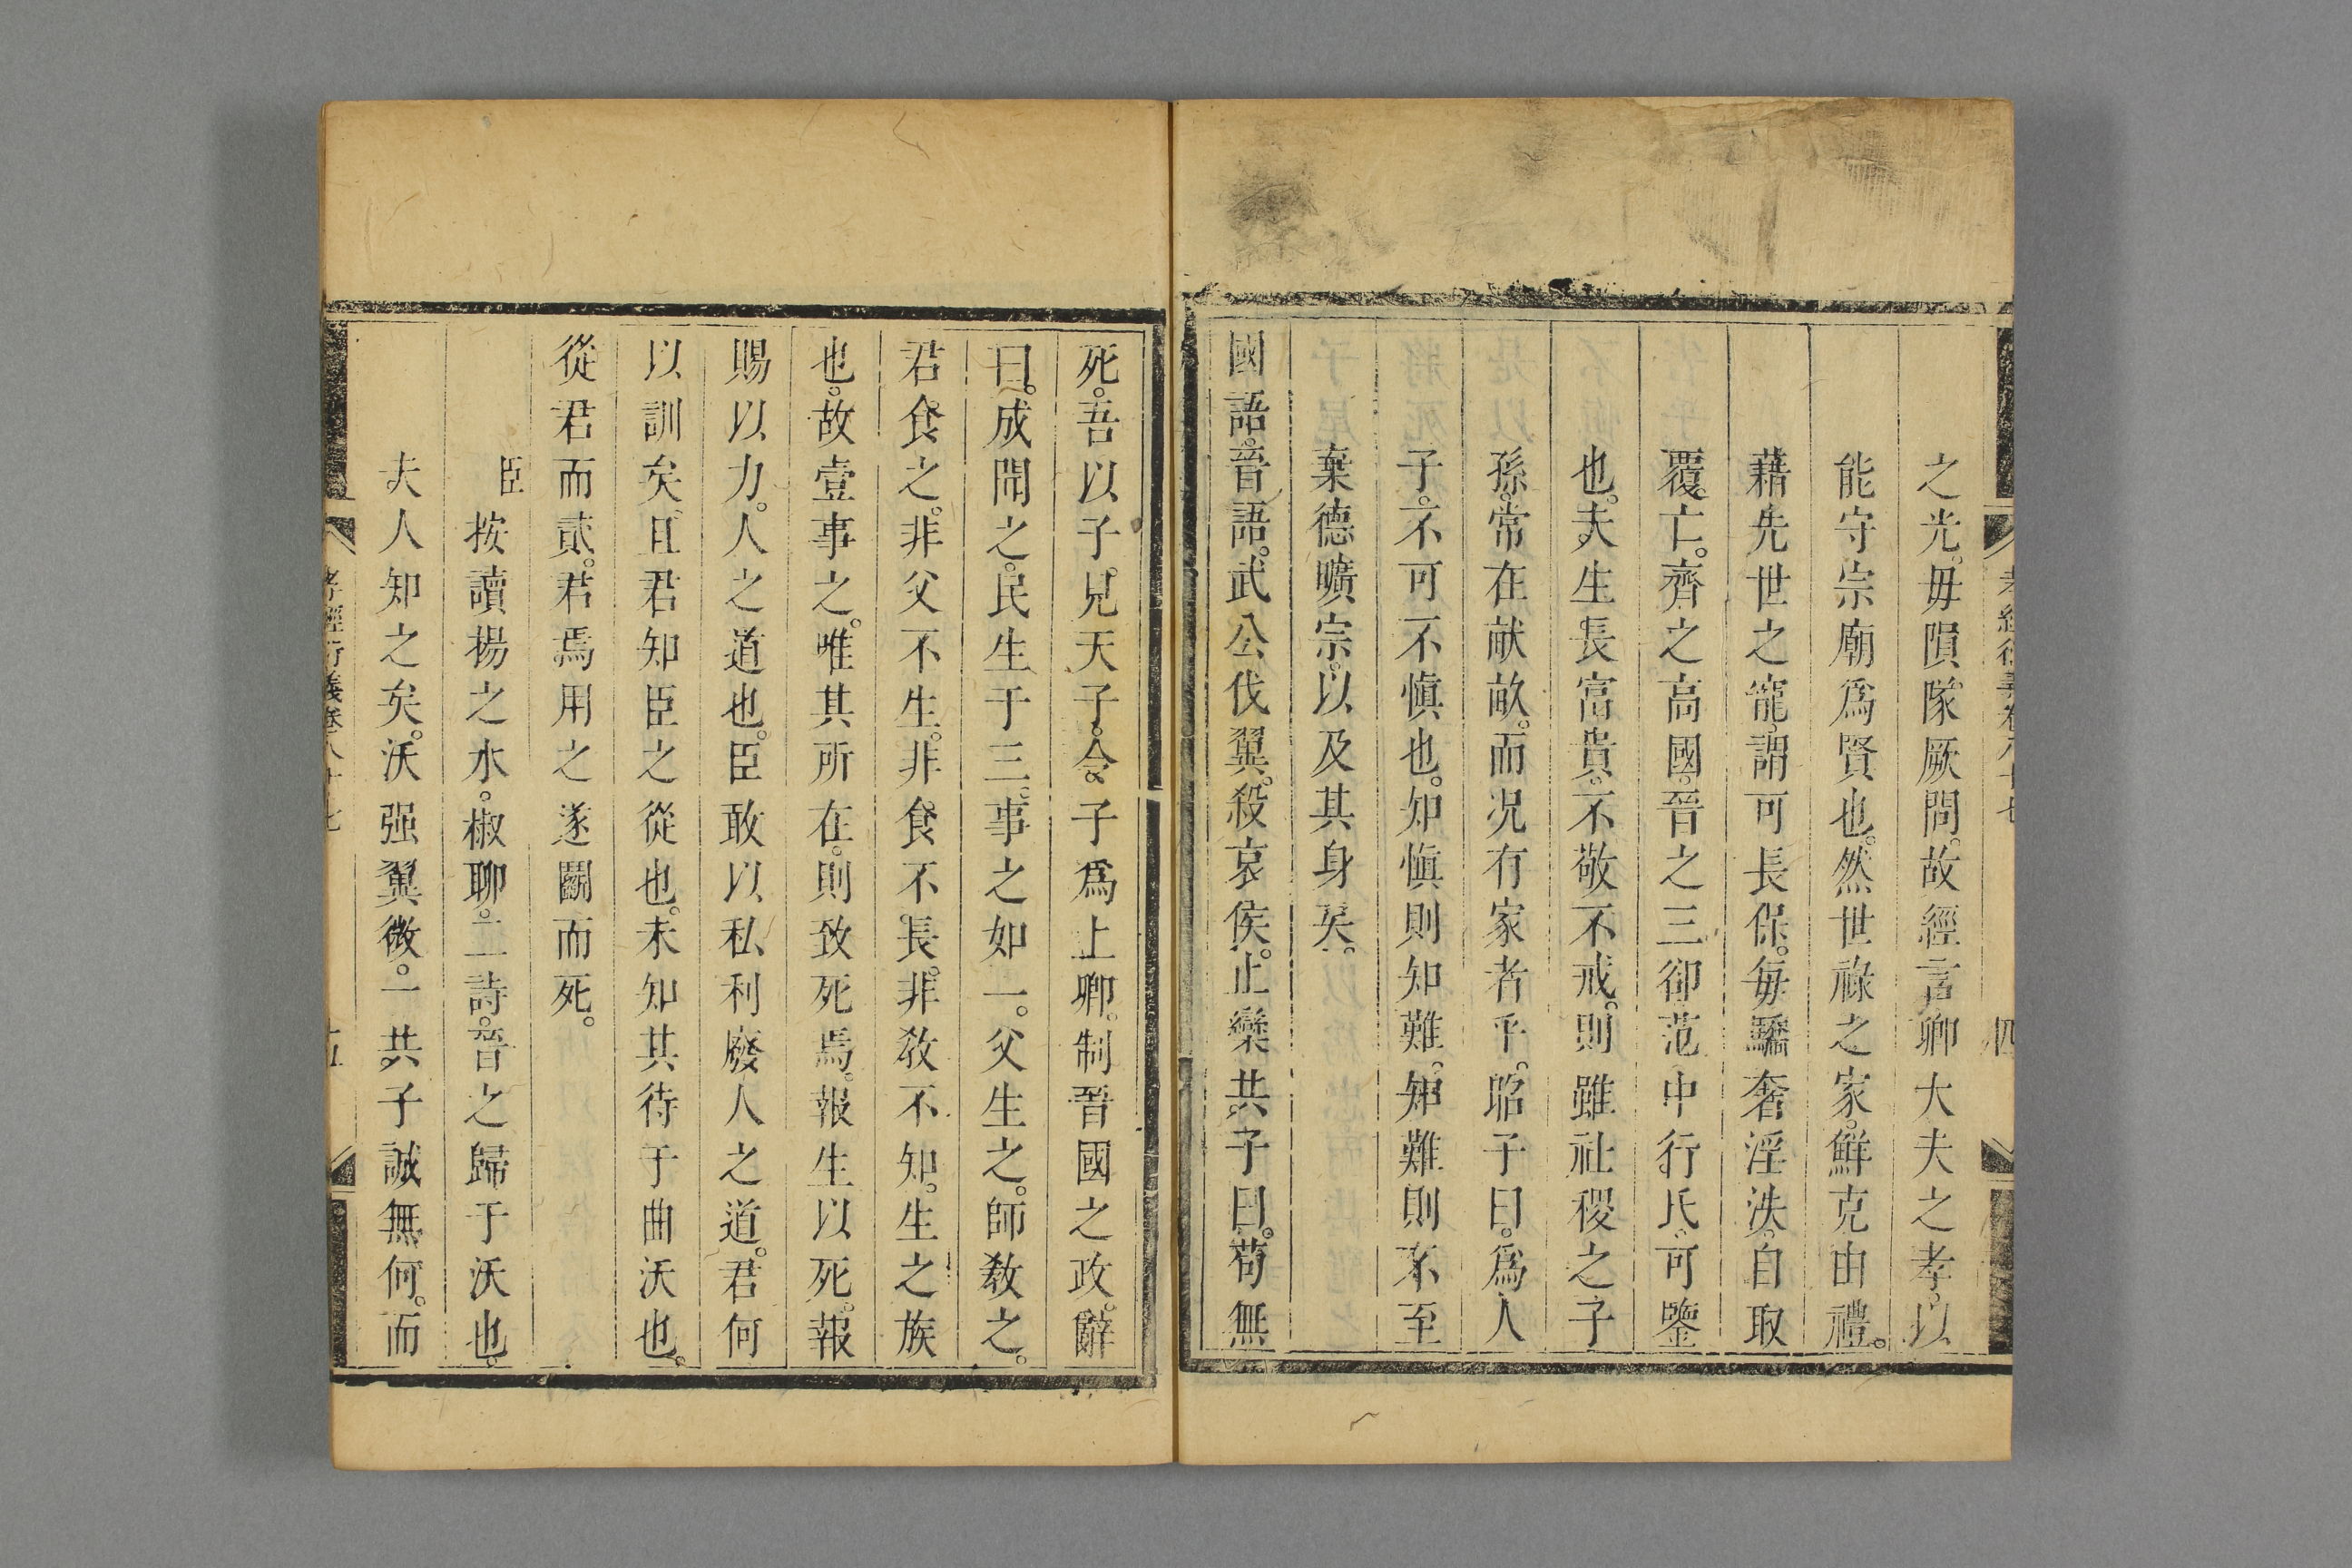 之光。毋隕隊厥問。故經言卿大夫之孝。以
能守宗廟爲賢也。然世祿之家。鮮克由禮。
藉先世之寵。謂可長保。毎驕奢淫泆。自取
覆亡。齊之高國。晉之三郤范中行氏。可鑒
也。夫生長富貴。不敬不戒。則雖社稷之子
孫。常在畎畝。而况有家者乎。昭子曰。爲人
子。不可不慎也。知慎則知難。知難則不至
棄德曠宗。以及其身矣。
國語。晉語。武公伐翼。殺哀侯。止欒共子曰。苟無
死。吾以子。見天子。令子爲上卿。制晉國之政。辭
曰。成聞之。民生于三。事之如一。父生之。師敎之。
君食之。非父不生。非食不長。非敎不知。生之族
也。故壹事之。唯其所在。則致死焉。報生以死。報
賜以力。人之道也。臣敢以私利廢人之道。君何
以訓矣。且君知臣之從也。未知其待于曲沃也。
從君而貳。君焉用之。遂鬭而死。
臣按讀揚之水。椒聊。二詩。晉之歸于沃也。
夫人知之矣。沃强翼微。一共子誠無何。而
孝經衍義卷八十七